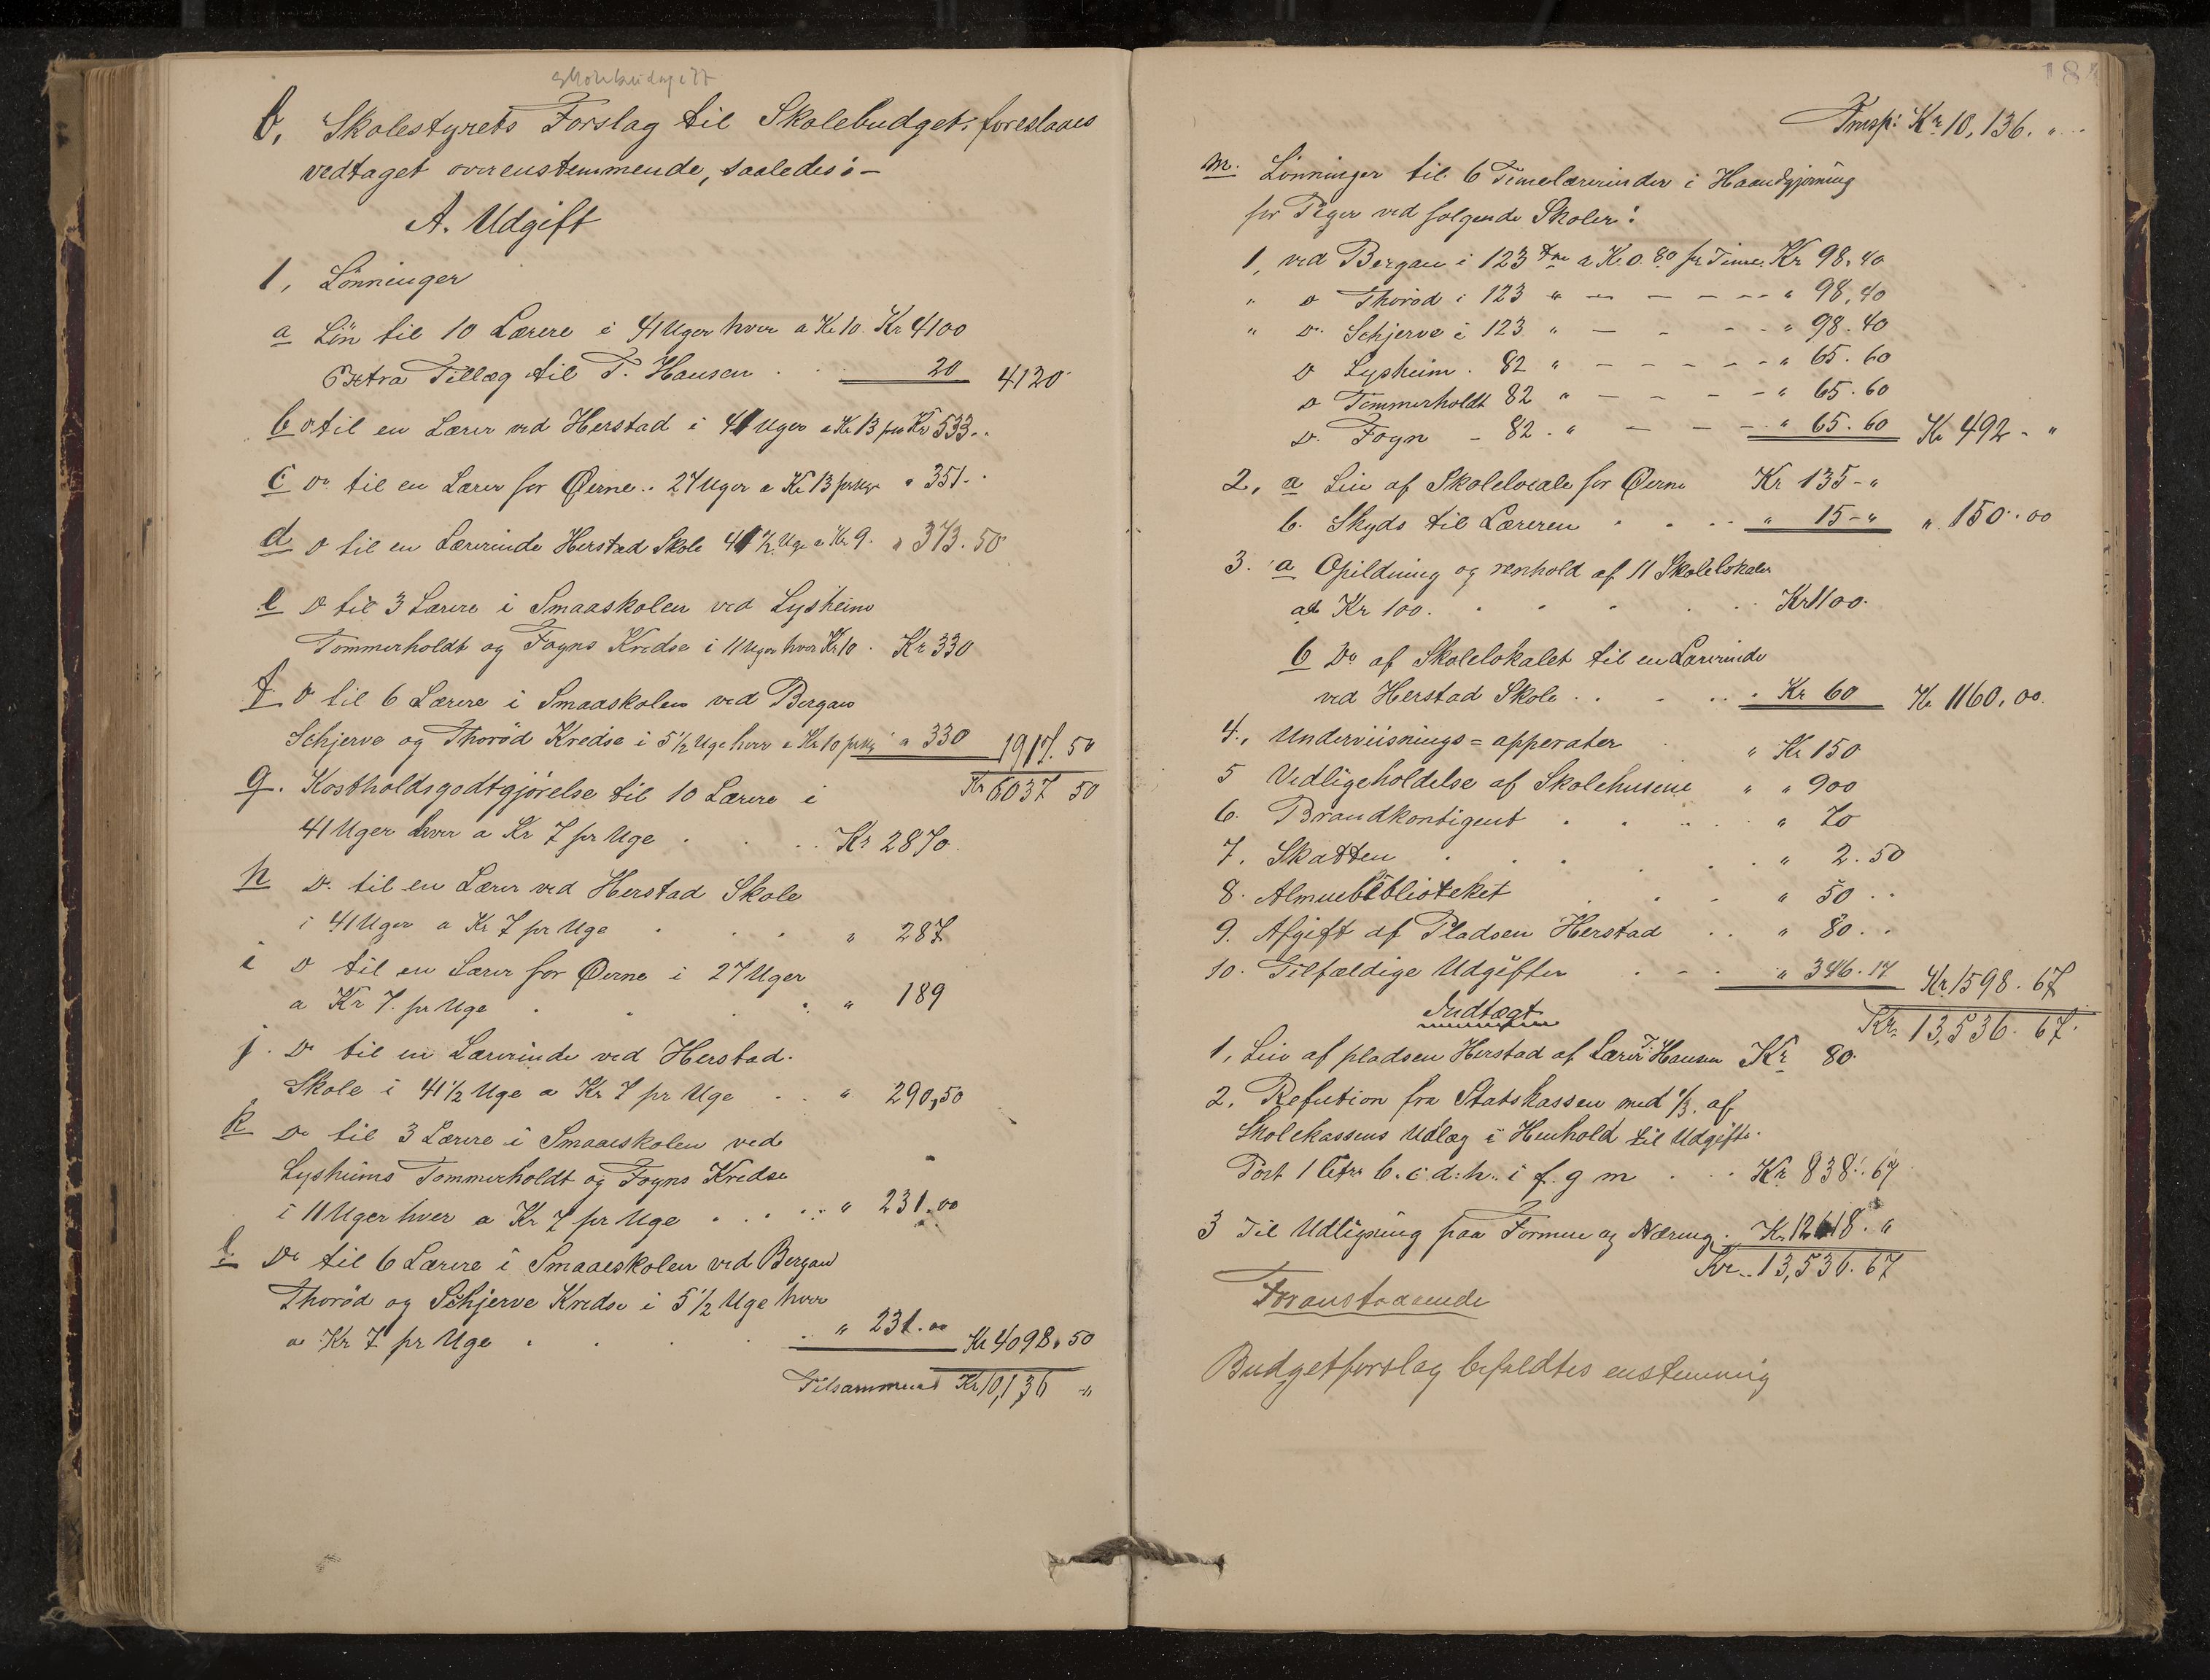 Skolebudgett
b, Skolestyrets Forslag til Skolebudget: foreslaaes
vedtaget overenstemmende, saaledes: –
A. Udgift
1, Lønninger
a Løn til 10 Lærere i 41 Uger hver a Kr 10. Kr 4100
Extra Tillæg til T. Hansen . . 20 4120
b Do til en Lærer ved Herstad i 41 Uger a Kr 13 pr Kr 533. "
c Do til en Lærer for Øerne . . 27 Uger a Kr 13 pr Uge " 351. "
d Do til en Lærerinde Herstad Skole 41 1/2 Uge a Kr 9. " 373.50
e Do til 3 Lærere i Smaaskolen ved Lysheim
Tommerholdt og Fogns Kredse i 11 Uger hver Kr 10 . Kr 330
f. Do til 6 Lærere i Smaaskolen ved Bergan
Schjerve og Thorød Kredse i 5 1/2 Uge hver a Kr 10 pr Uge " 330 1917.50
Kr 6037 50
g. Kostholdsgodtgjørelse til 10 Lærere i
41 Uger hver a Kr 7 pr Uge . . . . Kr 2870.
h Do til en Lærer ved Herstad Skole
i 41 Uger a Kr 7 pr Uge . . . . " 287
i Do til en Lærer for Øerne i 27 Uger
a Kr 7. pr Uge . . . " 189
j. Do til en Lærerinde ved Herstad
Skole i 41 1/2 Uge a Kr 7 pr Uge . . " 290,50
k Do til 3 Lærere i Smaaeskolen ved
Lysheims Tommerholdt og Fogns Kredse
i 11 Uger hver a Kr 7 pr Uge . . . . " 231.00
l. Do til 6 Lærere i Smaaeskolen ved Bergan
Thorød og Schjerve Kredse i 5 1/2 Uge hver
a Kr 7 pr Uge . . . . " 231.00 Kr 4098.50
Tilsammens Kr 10,136 - "
184
Trnsp: Kr 10,136. " . .
m. Lønninger til 6 Timelærerinder i Haandgjerning
for Piger ved følgende Skoler:
1, ved Bergan i 123 Tme a K. 0.80 pr Time. Kr 98.40
" Do Thorød i 123 " – – – – – " 98,40
" Do Schjerve i 123 " – – – – " 98.40
Do Lysheim . 82 " – – – – – " 65.60
Do Tommerholdt 82 " – – – – " 65.60
Do Fogn – 82. " – – – " 65.60 Kr 492 - "
2, a Leie af Skolelocale for Øerne Kr 135 - "
b. Skyds til Læreren . . . . " 15 - " " 150.00
3. a Opildning og renhold af 11 Skolelokaler
a Kr 100. . . . . . Kr 1100.
b Do af Skolelokalet til en Lærerinde
ved Herstad Skole . . . . . Kr 60 Kr 1160,00
4., Underviisnings=apperater . " Kr 150
5 Vedligeholdelse af Skolehusene " " 900
6. Brandkontigent . . . . " 70
7. Skatten . . . . . " 2.50
8. Almuebiblioteket . . . " 50 . .
9. Afgift af Pladsen Herstad . . " 80 . .
10. Tilfældige Udgifter . . . " 346.17 Kr 1598.67
Kr. 13,536.67.
Indtægt
1, Leie af pladsen Herstad af Lærer T. Hansen Kr 80.
2. Refution fra Statskassen med 1/3 af
Skolekassens Udlæg i Henhold til Udgifts.
Post 1 Litr b. c. d. h. i f. g m . . . Kr 838.67
3 Til Udligning paa Formue og Næring. Kr 12618. "
Kr. 13,536.67
Foranstaaende
Budgetforslag bifaldtes enstemmig